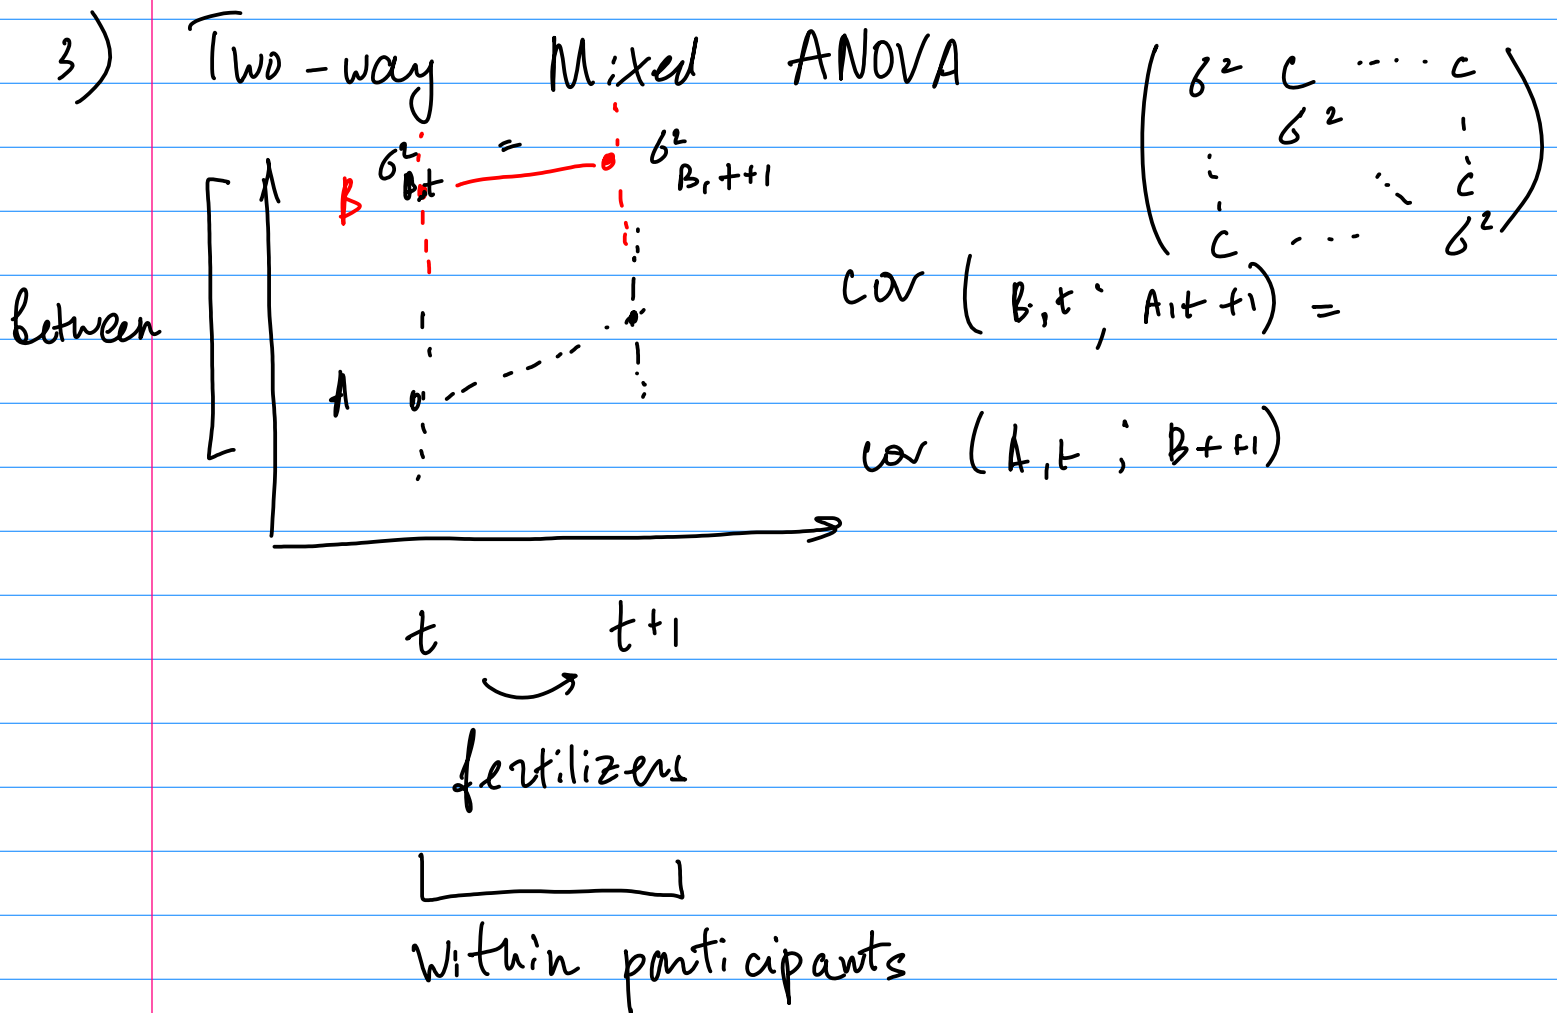 3) Two-way Mixed ANOVA
σ² C ····· C
σ²
C
C ··· σ²
σ²B,t = σ²B,t+1
B
Between
cov (B,t ; A,t+1) =
A
cov (A,t ; Bt+1)
t t+1
fertilizers
within participants